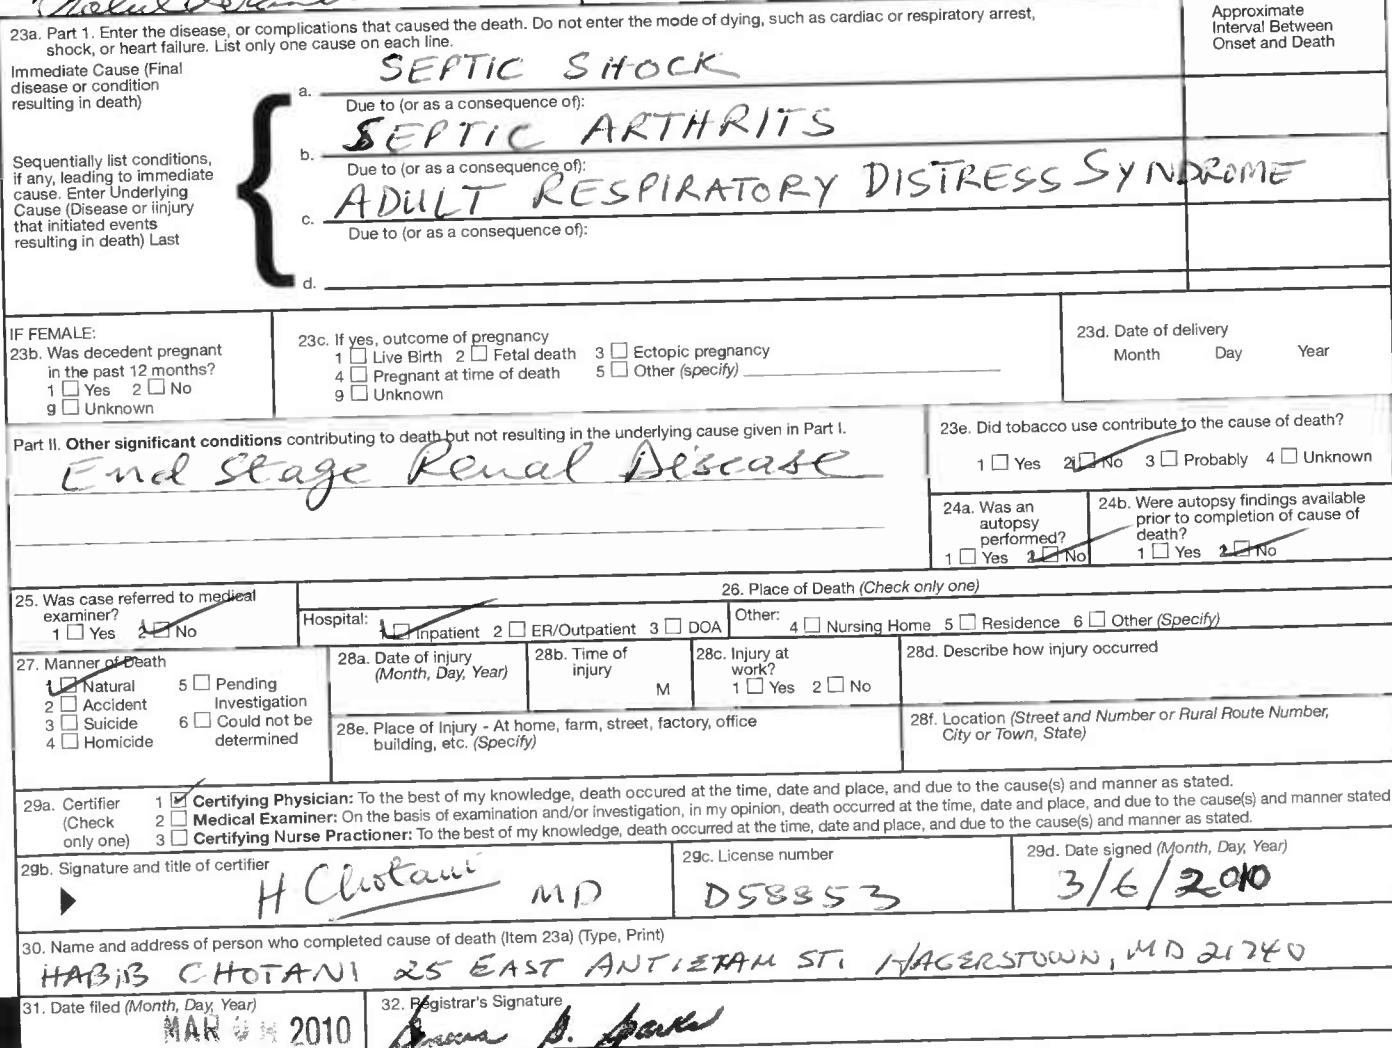 23a. Part 1. Enter the disease, or complications that caused the death. Do not enter the mode of dying, such as cardiac or respiratory arrest,
shock, or heart failure. List only one cause on each line.
Approximate
Interval Between
Onset and Death
Immediate Cause (Final
disease or condition
resulting in death)
a. SEPTIC SHOCK
Due to (or as a consequence of):
b. SEPTIC ARTHRITS
Sequentially list conditions,
if any, leading to immediate
cause. Enter Underlying
Cause (Disease or iinjury
that initiated events
resulting in death) Last
Due to (or as a consequence of):
c. ADULT RESPIRATORY DISTRESS SYNDROME
Due to (or as a consequence of):
d.
IF FEMALE:
23b. Was decedent pregnant
in the past 12 months?
1 Yes 2 No
9 Unknown
23c. If yes, outcome of pregnancy
1 Live Birth 2 Fetal death 3 Ectopic pregnancy
4 Pregnant at time of death 5 Other (specify)
9 Unknown
23d. Date of delivery
Month Day Year
Part II. Other significant conditions contributing to death but not resulting in the underlying cause given in Part I.
End Stage Renal Disease
23e. Did tobacco use contribute to the cause of death?
1 Yes 2 No 3 Probably 4 Unknown
24a. Was an
autopsy
performed?
1 Yes 2 No
24b. Were autopsy findings available
prior to completion of cause of
death?
1 Yes 2 No
25. Was case referred to medical
examiner?
1 Yes 2 No
26. Place of Death (Check only one)
Hospital: 1 Inpatient 2 ER/Outpatient 3 DOA
Other: 4 Nursing Home 5 Residence 6 Other (Specify)
27. Manner of Death
1 Natural 5 Pending
2 Accident Investigation
3 Suicide 6 Could not be
4 Homicide determined
28a. Date of injury
(Month, Day, Year)
28b. Time of
injury
M
28c. Injury at
work?
1 Yes 2 No
28d. Describe how injury occurred
28e. Place of Injury - At home, farm, street, factory, office
building, etc. (Specify)
28f. Location (Street and Number or Rural Route Number,
City or Town, State)
29a. Certifier
(Check
only one)
1 Certifying Physician: To the best of my knowledge, death occured at the time, date and place, and due to the cause(s) and manner as stated.
2 Medical Examiner: On the basis of examination and/or investigation, in my opinion, death occurred at the time, date and place, and due to the cause(s) and manner stated
3 Certifying Nurse Practioner: To the best of my knowledge, death occurred at the time, date and place, and due to the cause(s) and manner as stated.
29b. Signature and title of certifier
H Chotani MD
29c. License number
D58853
29d. Date signed (Month, Day, Year)
3/6/2010
30. Name and address of person who completed cause of death (Item 23a) (Type, Print)
HABIB CHOTANI 25 EAST ANTIETAM ST. HAGERSTOWN, MD 21740
31. Date filed (Month, Day, Year)
MAR 2010
32. Registrar's Signature